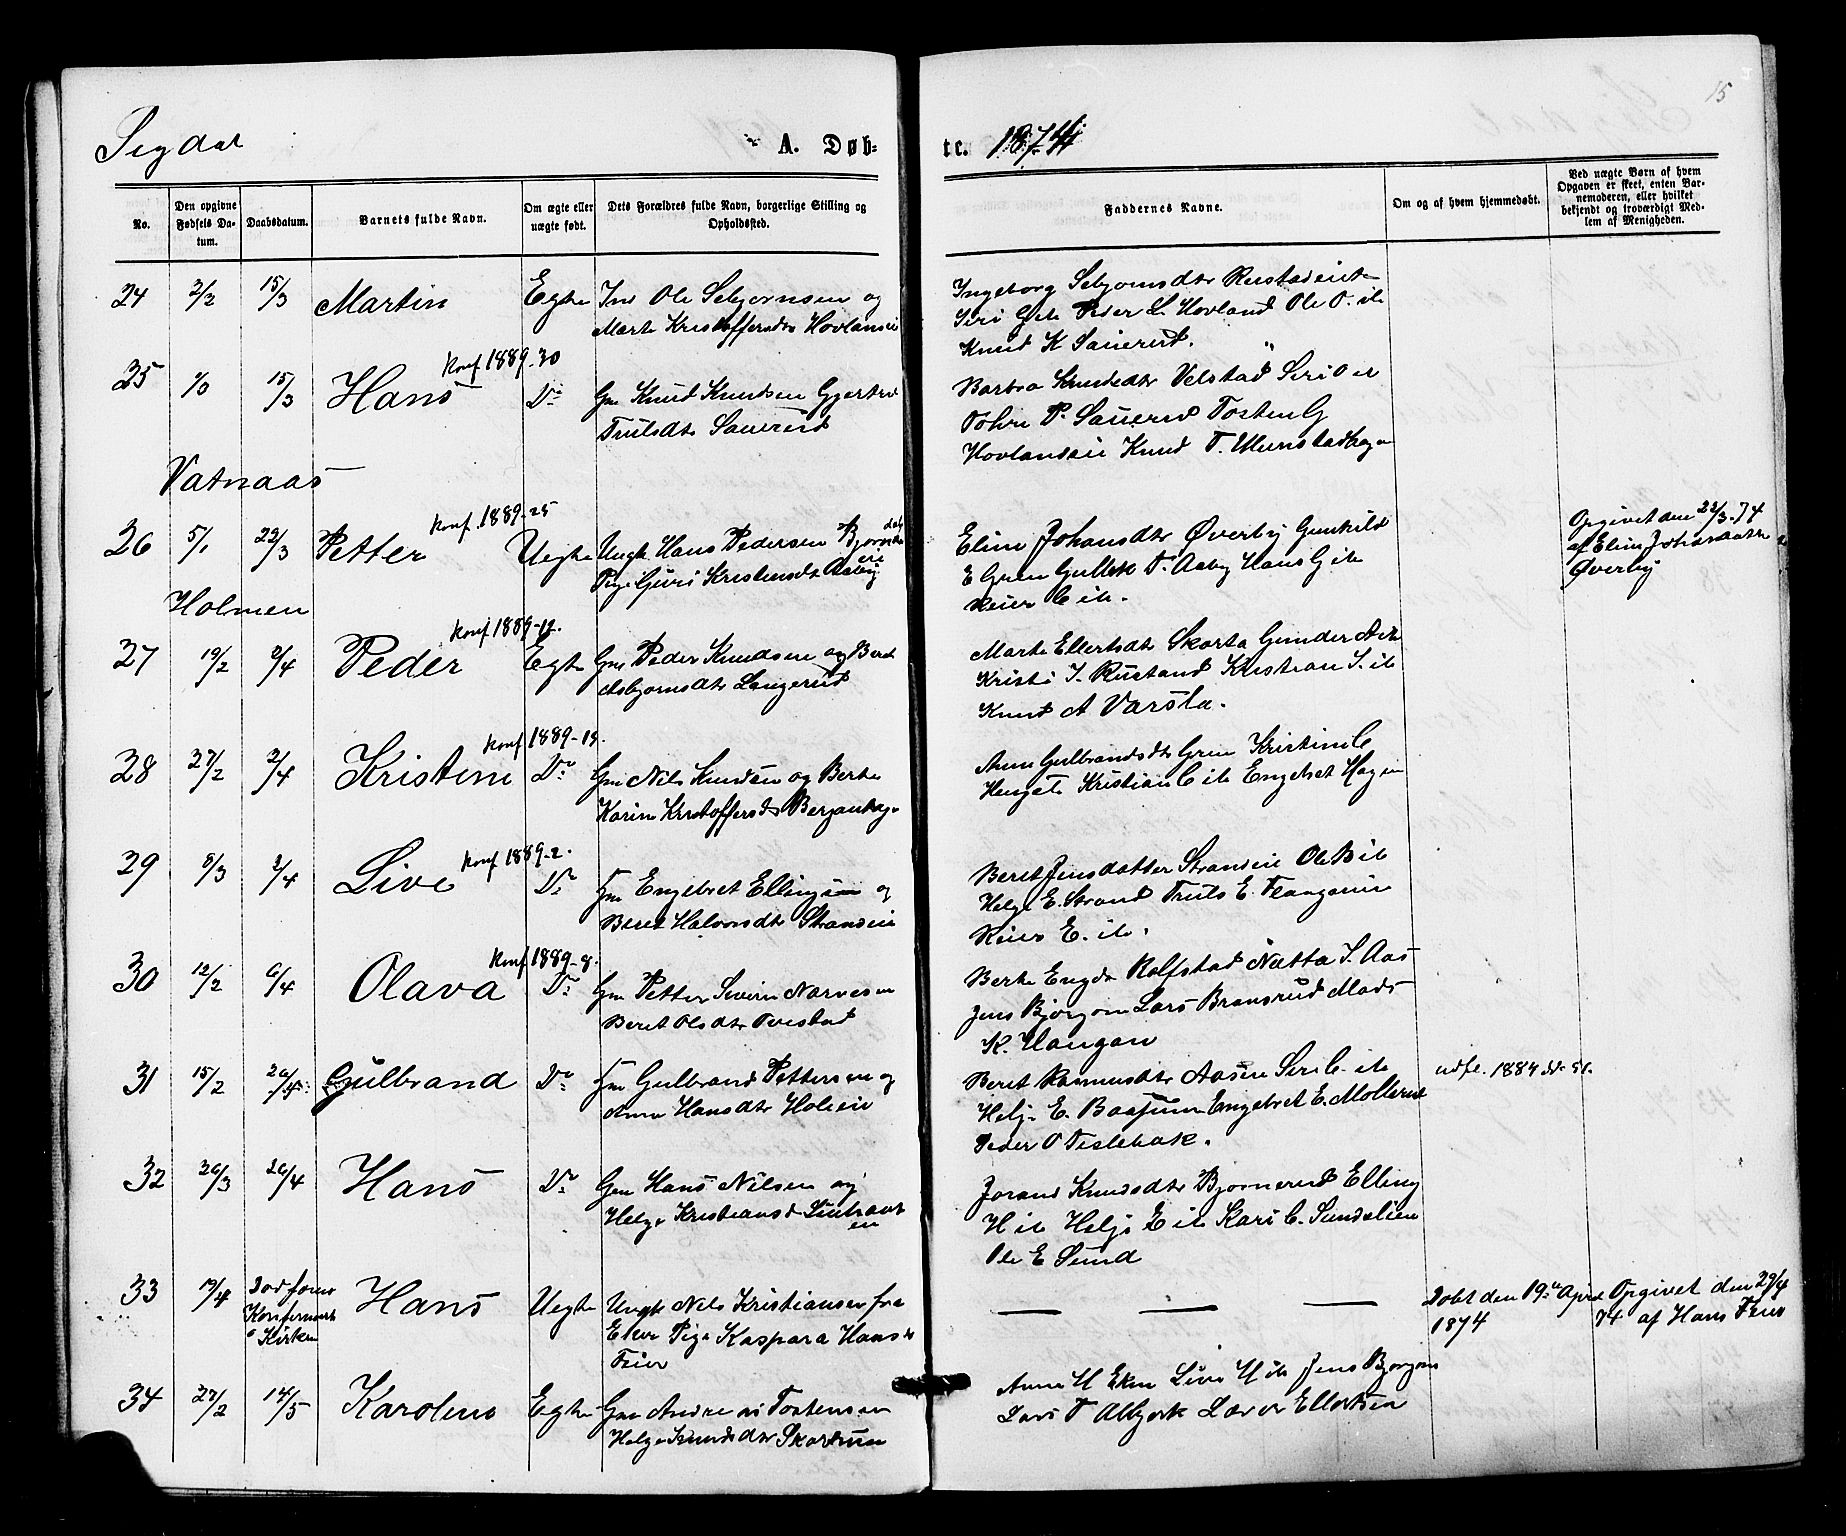 15
Sigdal A. Døb- te. 1874
No.
Den opgivne Fødsels Da- tum.
Daabsdatum.
Barnets fulde Navn.
Om ægte eller uægte født.
Dets Forældres fulde Navn, borgerlige Stilling og Opholdssted.
Faddernes Navne.
Om og af hvem hjemmedøbt.
Ved uægte Børn af hvem Opgaven er skeet, enten Bar- nemoderen, eller hvilket bekjendt og troværdigt Med- lem af Menigheden.
24 2/2 15/3 Martin Egte Ole Sebjornsen og
Marte Kristoffersdtr Hovlandseie
Ingeborg Sebjornsdtr Rustadeiet
Siri G. ib. Peder L. Hovland Ole O. ib
Knud K Sauerud.
Konf 1889-30
25 1/3 15/3 Hans Do Gm Knud Knudsen Gjertrud
Trulsdtr Sauerud
Barbra Knudsdtr Velstad Siri O ib
Tohn P. Sauerud Tosten G
Hovlandseie Knud T.
Vatnaas
Konf. 1889-25
26 5/1 22/3 Petter Uegte Ungk Hans Pedersen
Pige Guri Kristensdtr Aaby
Eline Johansdtr Øverby Gunhild
E Gren Gulbr. T. Aaby Hans G ib
Reier C ib.
Opgivet den 22/3.74
af Eline Johansdatter
Øverby
Holmen
Konf 1889-12.
27 19/2 2/4 Peder Egte Gm Peder Knudsen og Beret
Asbjornsdtr Langerud
Marte Ellertsdtr Skorta Gunder A ib
Kristi J. Rustand Kristian S. ib
Knud A Varsla.
Konf 1889-19.
28 27/2 2/4 Kristine Do Gm Nils Knudsen og Berte
Karine Kristoffersdtr Berganhage
Anne Gulbrandsdtr Gren Kristine C
Kristian C ib Engebret Hagen
Konf 1889-2.
29 8/3 2/4 Live Do Hm Engebret Ellingsen og
Beret Halvorsdtr Strandeie
Beret Jensdatter Strandeie Ole B ib
Helge E. Strand Truls E.
Reier E. ib.
Konf 1889-8.
30 12/2 6/4 Olava Do Gm Petter Severin Narvesen
Beret Olsdtr Tveistad
Berte Engdtr Rolfstad Natta S. Aas
Jens Bjorgom Lars Bransrud Mads
K. Haugan
31 15/2 26/4 Gulbrand Do Hm Gulbrand Pettersen og
Anne Hansdtr Holeeie
Beret Rasmusdtr Aasen Siri C. ib
Helge E. Engebret E. Mollerud
Peder O Tislebak.
udfl. 1884
32 26/3 26/4 Hans Do Gm Hans Nilsen og
Helge Kristiansd
Joran Knudsdtr Bjornerud Elling
H ib Helge E ib Kari C. Sundelien
Ole E Sund
33 19/4 Død forend Konfirmeret i Kirken Hans Uegte Ungk Nils Kristiansen fra
Eker Pige Kaspara Hansdtr
Frier
— — —
Døbt den 19de April
1874
Opgivet den 29/4
74 af Hans Frier
34 27/2 14/5 Karoline Egte Gm Andreas Tostensen
Helge Knudsdtr
Anne H Eken Live H ib Jens Bjorgom
Lars T Albjerk Laver Ellertsen